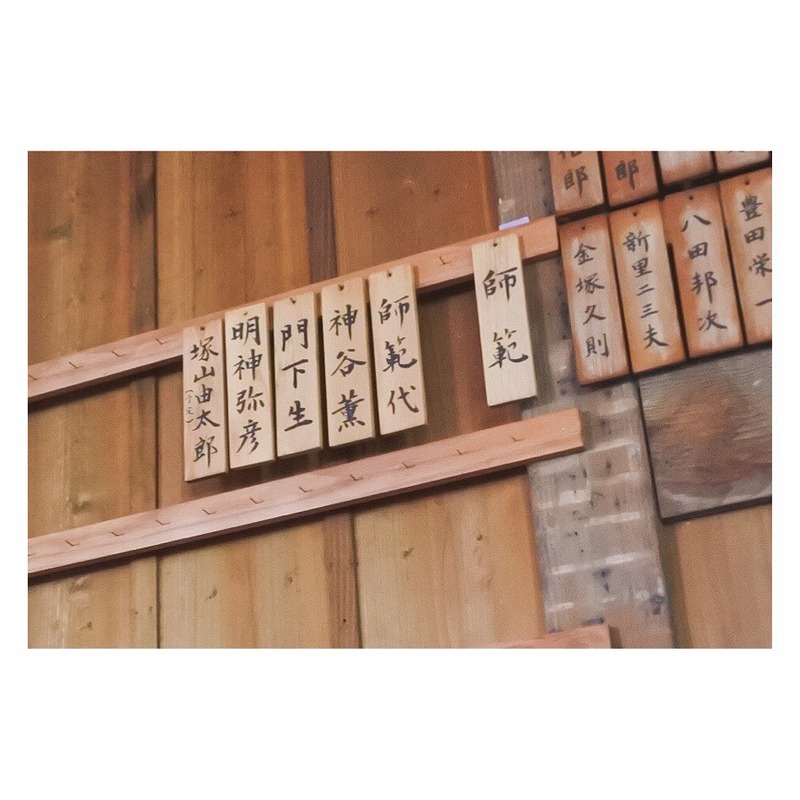 郎
郎
豊田栄一
八田邦次
新里二三夫
金塚久則
師範
師範代
神谷薫
門下生
明神弥彦
塚山由太郎